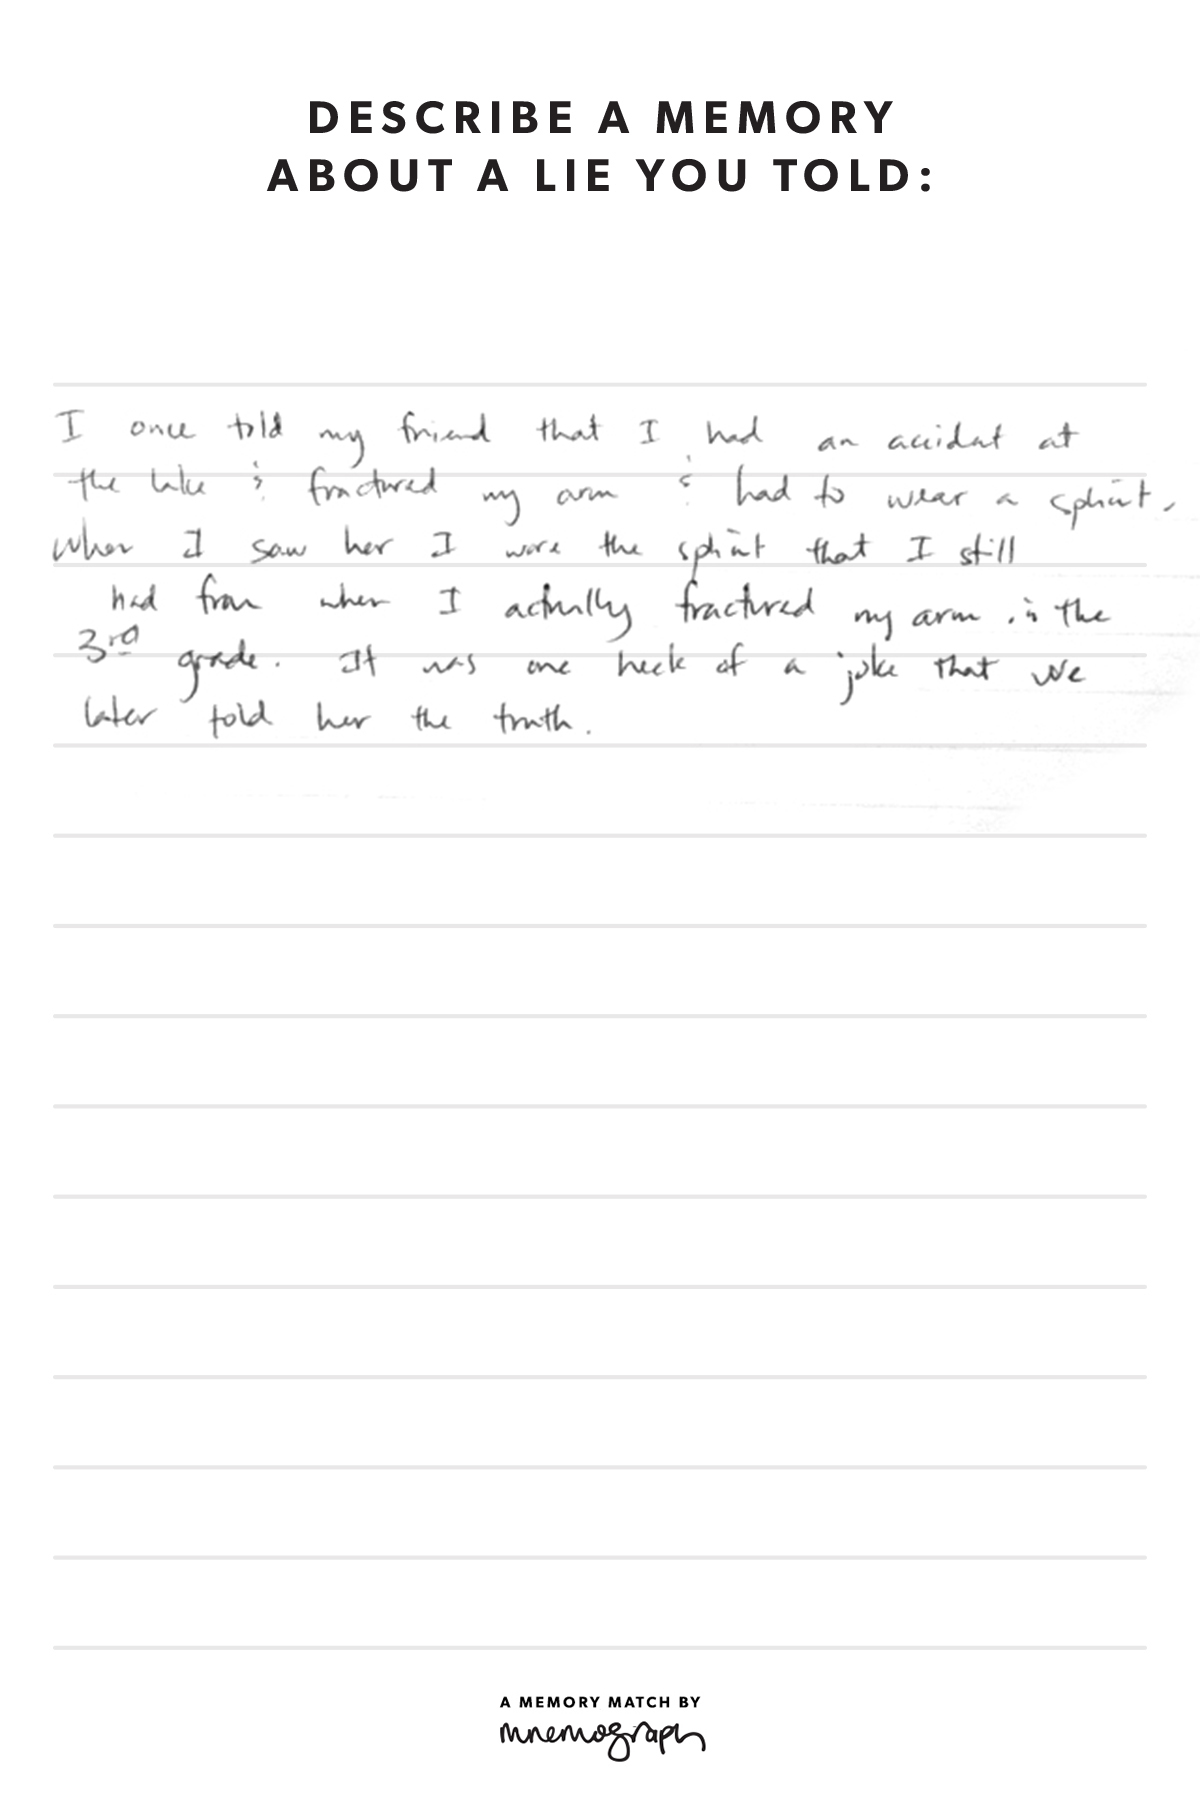 DESCRIBE A MEMORY
ABOUT A LIE YOU TOLD:
I once told my friend that I had an accident at
the lake & fractured my arm & had to wear a splint.
When I saw her I wore the splint that I still
had from when I actually fractured my arm in the
3rd grade. It was one heck of a joke that we
later told her the truth.
A MEMORY MATCH BY
mnemograph